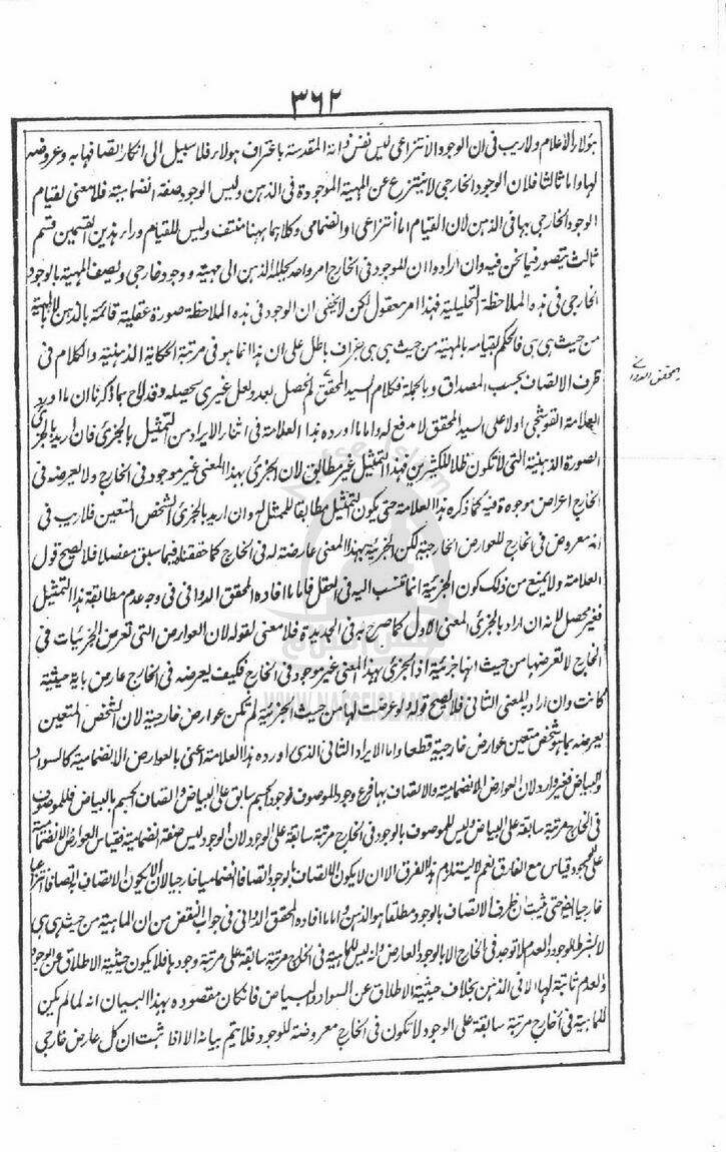 ٣٦٢
هؤلاء الأعلام ولا ريب فى ان الوجود الانتزاعى ليس نفس ذاته المقدسة باعتراف هؤلاء فلا سبيل الى انكار اتصافها به وعروضه
لها واما ثالثا فلان الوجود الخارجى لا ينتزع عن المهية الموجودة فى الذهن وليس الوجود صفة انضمامية فلا معنى لقيام
الوجود الخارجى بها فى الذهن لان القيام اما انتزاعى او انضمامى وكلاهما ههنا منتف وليس للقيام وراء هذين القسمين قسم
ثالث يتصور فيما نحن فيه وان ارادوا ان الموجود فى الخارج امر واحد يحلله الذهن الى مهية و وجود خارجى ويصف المهية بالوجود
الخارجى فى هذه الملاحظة التحليلية فهذا امر معقول لكن لا يخفى ان الوجود فى هذه الملاحظة صورة عقلية قائمة بالذهن لا بالمهية
من حيث هى هى فالحكم بقيامه بالمهية من حيث هى هى جزاف باطل على ان هذا انما هو فى مرتبة الحكاية الذهنية والكلام فى
ظرف الاتصاف بحسب المصداق وبالجملة فكلام السيد المحقق لم يحصل بعد ولعل غيرى يحصله وقد لاح بما ذكرنا ان ما اورد
العلامة القوشجى اولا على السيد المحقق لا مدفع له واما ما اورده هذا العلامة فى اثناء الايراد من التمثيل بالجزئى فان اريد بالجزئى
الصورة الذهنية التى لا تكون ظلا لكثيرين فهذا التمثيل غير مطابق لان الجزئى بهذا المعنى غير موجود فى الخارج ولا يعرضه فى
الخارج اعراض موجودة فيه كما ذكره هذا العلامة حتى يكون التمثيل مطابقا للممثل له وان اريد بالجزئى الشخص المتعين فلا ريب فى
انه معروض فى الخارج للعوارض الخارجية لكن الجزئية بهذا المعنى عارضة له فى الخارج كما حققناه فيما سبق مفصلا فلا يصح قول
العلامة ولا يمنع من ذلك كون الجزئية انما تنتسب اليه فى العقل فاما ما افاده المحقق الدوانى فى وجه عدم مطابقة هذا التمثيل
فغير محصل لانه ان اراد بالجزئى المعنى الاول كما صرح به فى الجديدة فلا معنى لقوله لان العوارض التى تعرض الجزئيات فى
الخارج لا تعرضها من حيث انها جزئية اذ الجزئى بهذا المعنى غير موجود فى الخارج فكيف يعرضه فى الخارج عارض باية حيثية
كانت وان اراد المعنى الثانى فلا يصح قوله لو عرضت لها من حيث الجزئية لم تكن عوارض خارجية لان الشخص المتعين
يعرضه بما هو شخص متعين عوارض خارجية قطعا واما الايراد الثانى الذى اورده هذا العلامة اعنى بالعوارض الانضمامية كالسواد
والبياض فغير وارد لان العوارض الانضمامية والاتصاف بها فرع وجود الموصوف فوجود الجسم سابق على البياض واتصاف الجسم بالبياض فللموصوف
فى الخارج مرتبة سابقة على البياض وليس للموصوف بالوجود فى الخارج مرتبة سابقة على الوجود لان الوجود ليس صفة انضمامية فقياس العوارض الانضمامية
على الوجود قياس مع الفارق نعم لا يستلزم هذا الفرق الا ان لا يكون الاتصاف بالوجود اتصافا انضماميا خارجيا لا ان لا يكون الاتصاف به اتصافا انتزاعيا
خارجيا ايضا حتى يثبت ان ظرف الاتصاف بالوجود مطلقا هو الذهن واما ما افاده المحقق الدوانى فى جواب النقض من ان الماهية من حيث هى هى
لا بشرط الوجود والعدم لا توجد فى الخارج الا بالوجود العارض وانه ليس للماهية فى الخارج مرتبة سابقة على مرتبة وجودها فلا يكون حيثية الاطلاق عن الوجود
والعدم ثابتة لها الا فى الذهن بخلاف حيثية الاطلاق عن السواد والبياض فان كان مقصوده بهذا البيان انه لما لم يكن
للماهية فى الخارج مرتبة سابقة على الوجود لا تكون فى الخارج معروضة للوجود فلا يتم بيانه الا اذا ثبت ان كل عارض خارجى
المحقق الدوانى